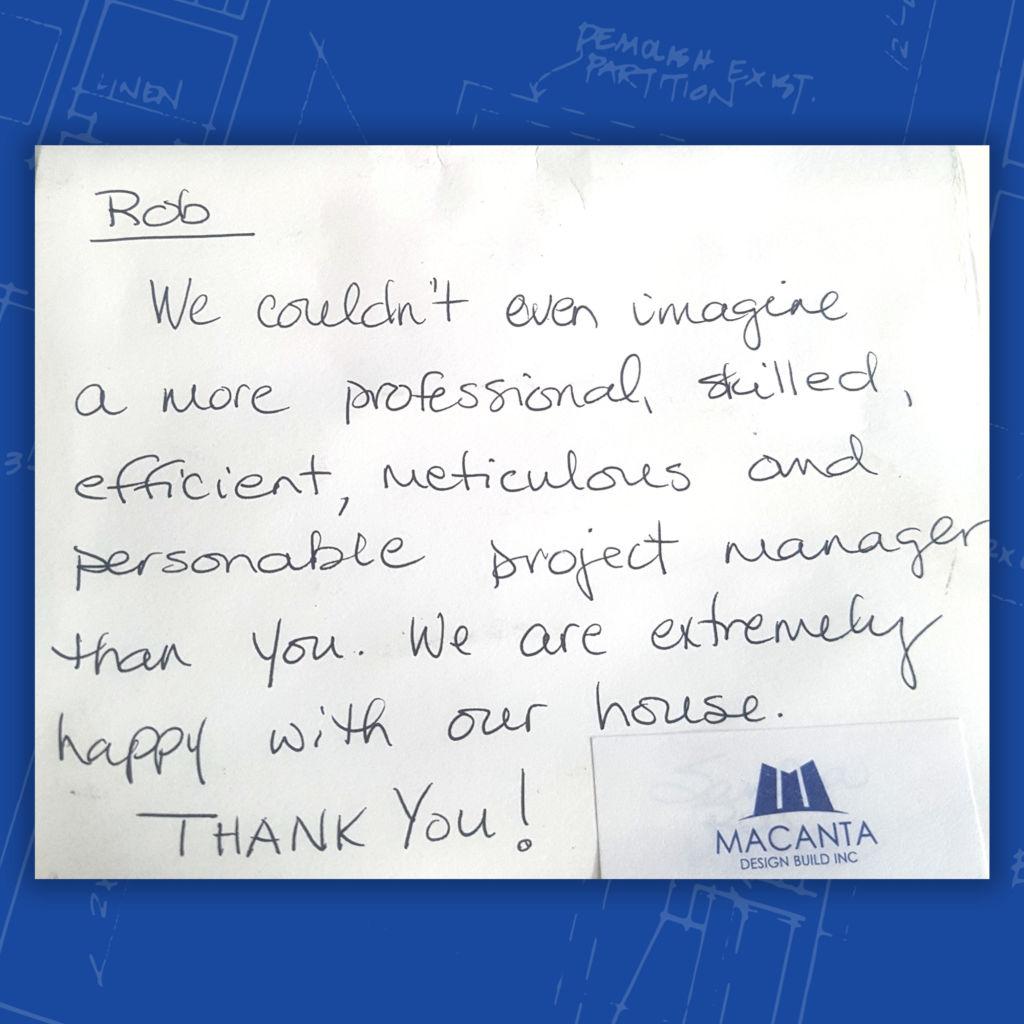 LINEN
DEMOLISH EXIST.
PARTITION
Rob
We couldn't even imagine
a more professional, skilled,
efficient, meticulous and
personable project manager
than you. We are extremely
happy with our house.
THANK YOU!
MACANTA
DESIGN BUILD INC